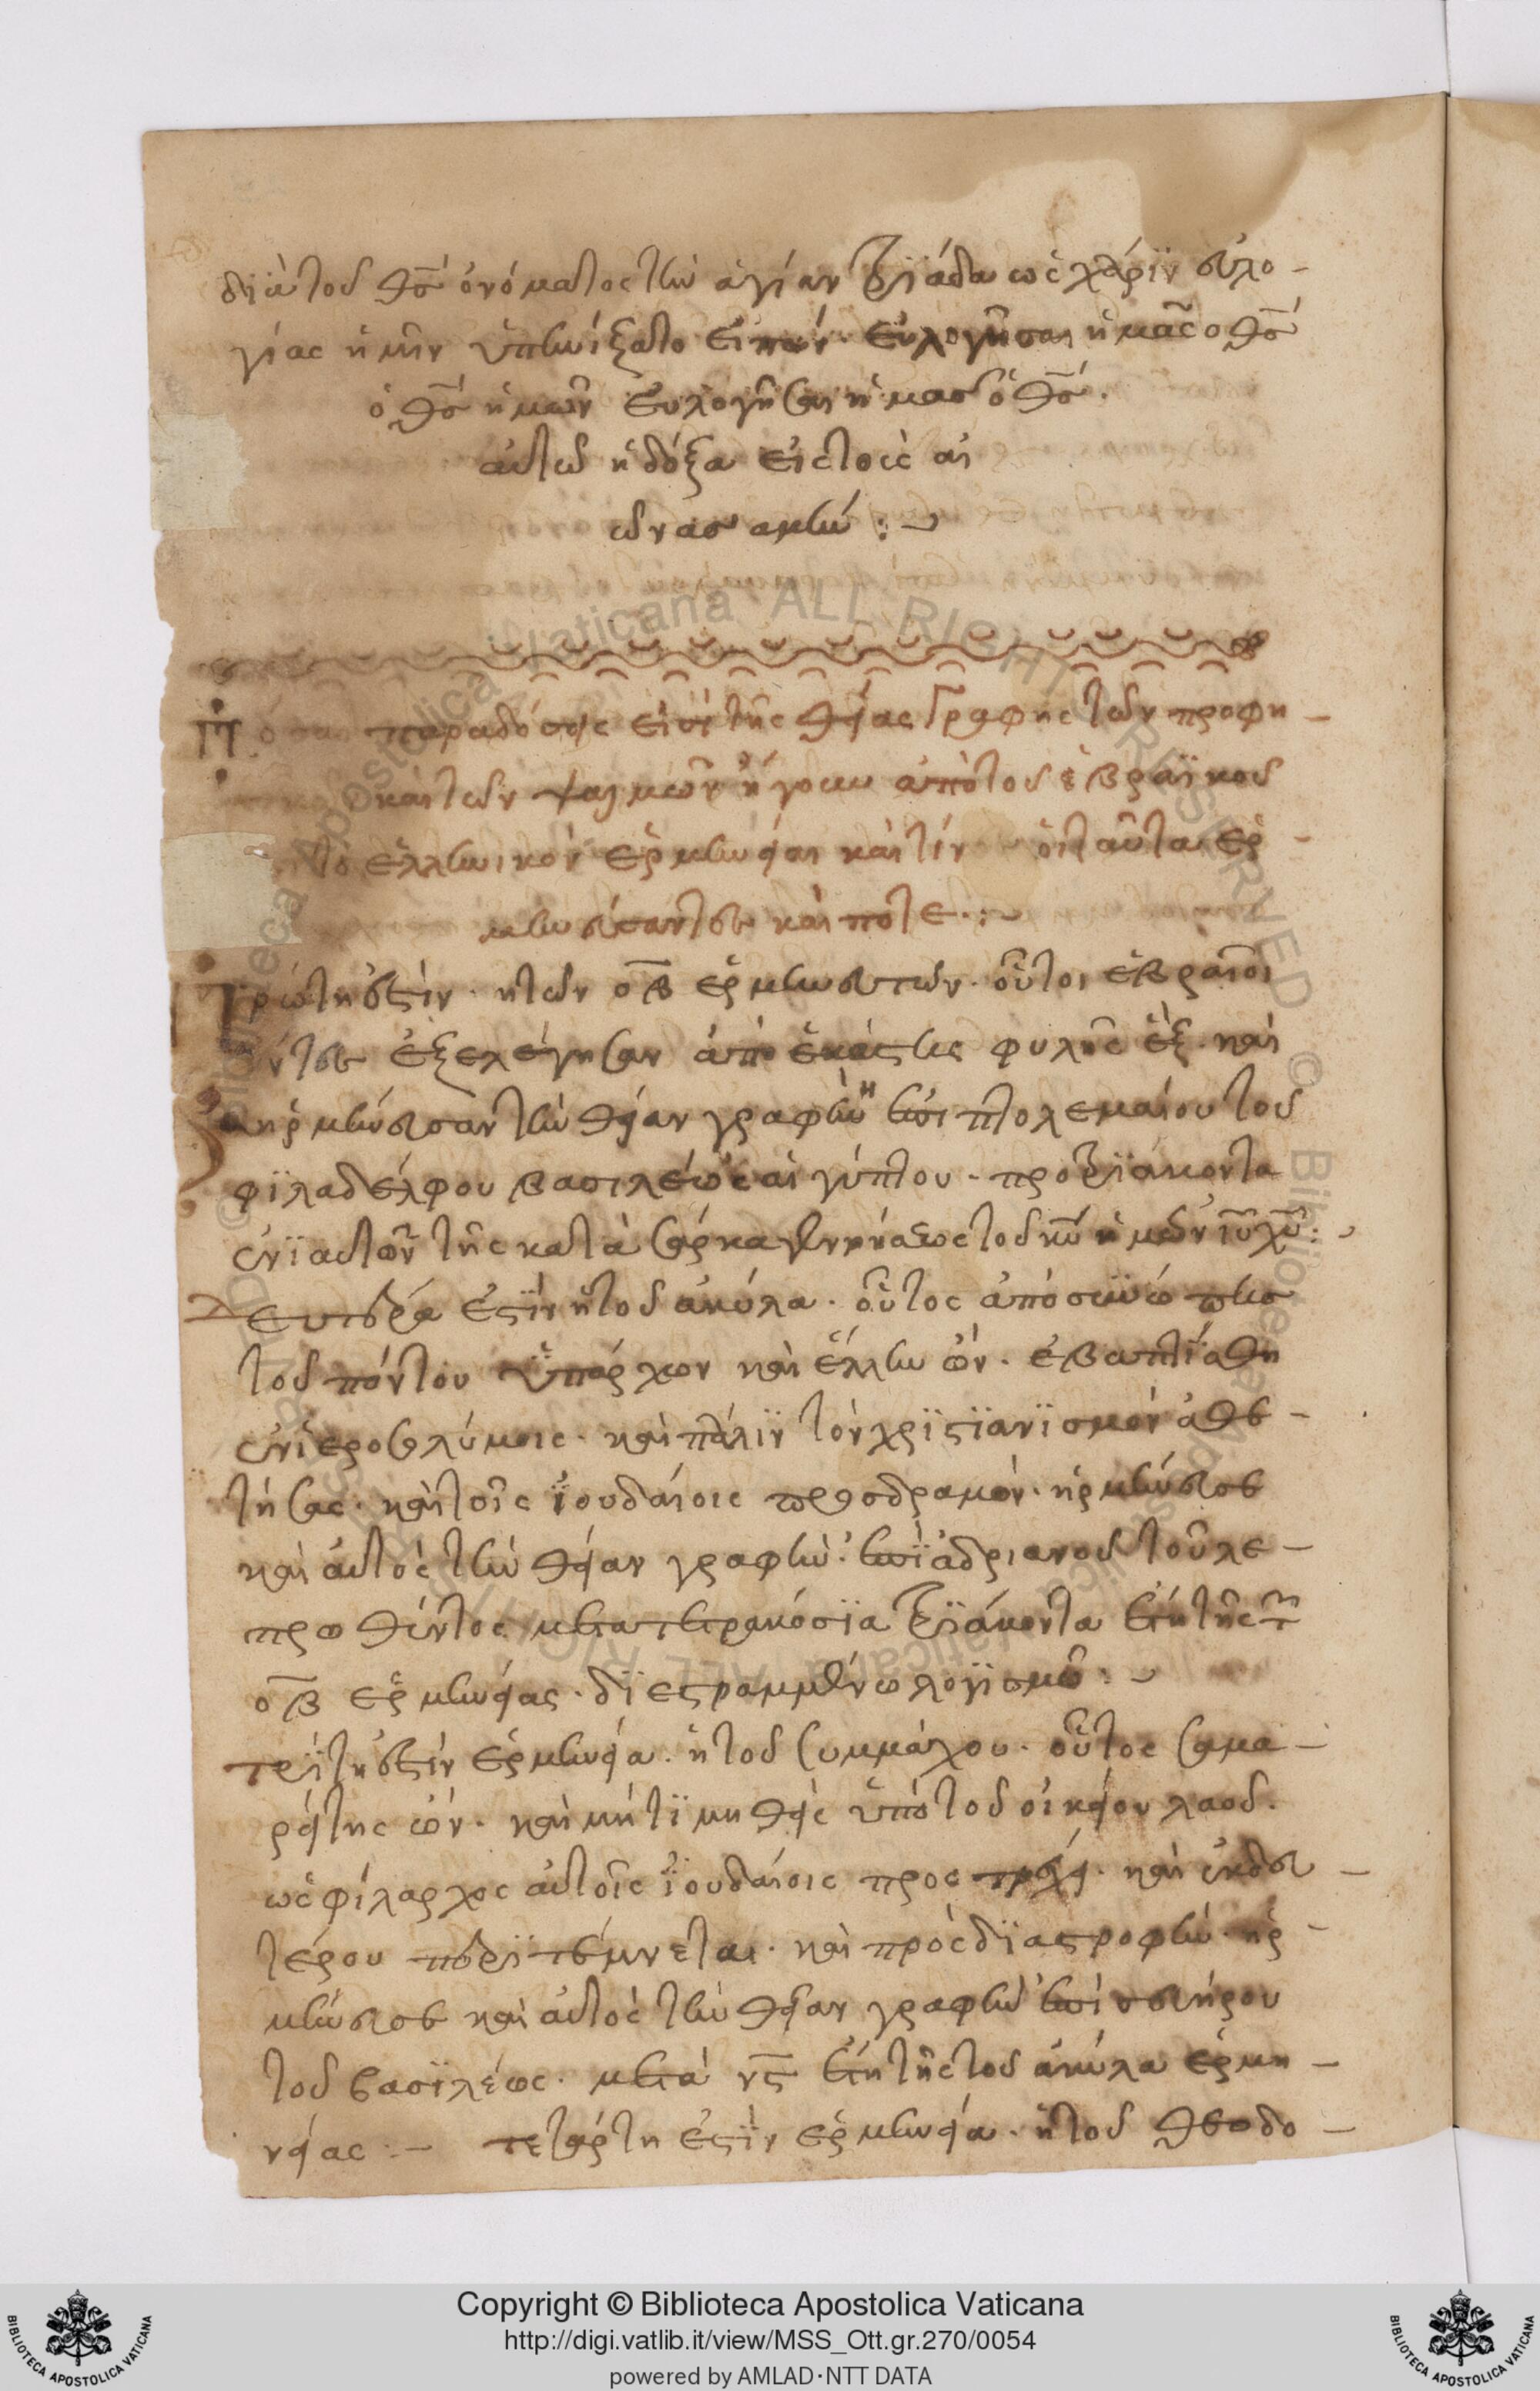 διὰ τοῦ θῦ ὀνόματος τὴν ἁγίαν τριάδα ὡς χάριν εὐλο-
γίας ἡμῖν ὑπηνίξατο εἰπών· εὐλογῆσαι ἡμᾶς ὁ θς
ὁ θς ἡμῶν εὐλογῆσαι ἡμᾶς ὁ θς.
αὐτῶ ἡ δόξα εἰς τοὺς αἰ
ῶνας ἀμήν :-
Πόσαι παραδόσεις εἰσὶ τῆς θείας γραφῆς τῶν προφη-
καὶ τῶν ψαλμῶν ἤγουν ἀπὸ τοῦ ἑβραϊκοῦ
τὸ ἑλληνικὸν ἑρμηνεῖαι καὶ τίνες οἱ ταῦτα ἑρ-
μηνεύσαντες καὶ πότε.:-
Πρώτη ἐστὶν· ἡ τῶν οβ ἑρμηνευτῶν· οὗτοι ἑβραῖοι
ὄντες ἐξελέγησαν ἀπὸ ἑκάστης φυλῆς ἓξ· καὶ
ἡρμήνευσαν τὴν θείαν γραφὴν ἐπὶ πτολεμαίου τοῦ
φϊλαδέλφου βασιλέως αἰγύπτου· πρὸ τριάκοντα
ἐνϊαυτῶν τῆς κατὰ σάρκα γεννήσεως τοῦ κῦ ἡμῶν ἰῦ χῦ:
Δευτέρα ἐστὶν ἡ τοῦ ἀκύλα· οὗτος ἀπὸ σινώπης
τοῦ πόντου ὑπάρχων καὶ ἕλλην ὤν· ἐβαπτίσθη
ἐν ἱεροσολύμοις· καὶ πάλιν τὸν χρϊστϊανϊσμὸν ἀθε-
τήσας· καὶ τοῖς ἰουδαίοις προσδραμών· ἡρμήνευσε
καὶ αὐτὸς τὴν θείαν γραφὴν· ἐπὶ ἀδριανοῦ τοῦ λε-
πρωθέντος μετὰ τετρακόσϊα τριάκοντα ἔτη τῆς τ
οβ ἑρμηνείας· διεστραμμένω λογισμῶ:-
τρίτη ἐστὶν ἑρμηνεία· ἡ τοῦ συμμάχου· οὗτος σαμα-
ρείτης ὤν· καὶ μὴ τιμηθεὶς ὑπὸ τοῦ οἰκείου λαοῦ.
ὡς φίλαρχος αὐτοῖς ἰουδαίοις προστρέχει· καὶ ἐκ δευ-
τέρου περιτέμνεται· καὶ πρὸς διαστροφὴν· ἡρ-
μήνευσε καὶ αὐτὸς τὴν θείαν γραφὴν ἐπὶ σευήρου
τοῦ βασιλέως· μετὰ νς ἔτη τῆς τοῦ ἀκύλα ἑρμη-
νείας :- τετάρτη ἐστὶν ἑρμηνεία· ἡ τοῦ θεοδο-
Copyright © Biblioteca Apostolica Vaticana
http://digi.vatlib.it/view/MSS_Ott.gr.270/0054
powered by AMLAD·NTT DATA
BIBLIOTECA APOSTOLICA VATICANA
BIBLIOTECA APOSTOLICA VATICANA